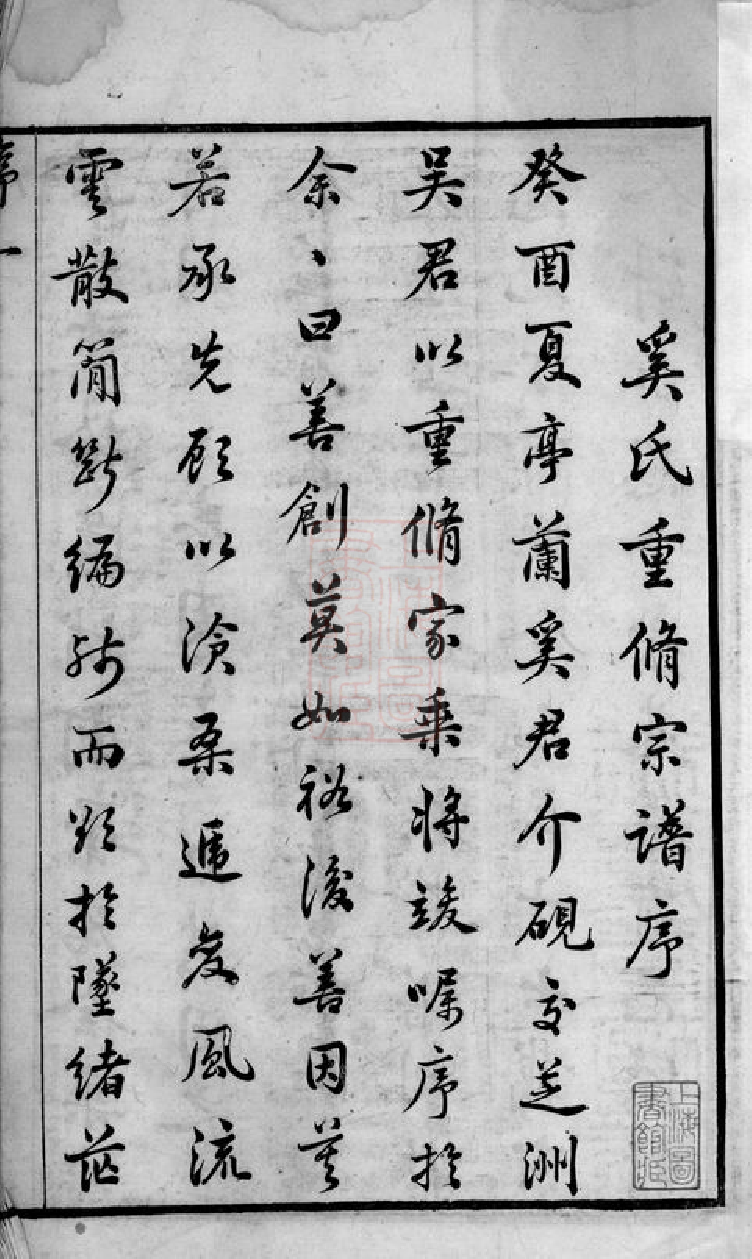 奚氏重脩宗譜序
癸酉夏亭蘭奚君介硯交芝洲
吴君以重脩家乗将竣嘱序於
余〻曰善創莫如裕後善因莫
若承先顧以滄桑遞變風流
雲散簡斷編殘而欲於墜緒茫
序一
上海圖
書館藏